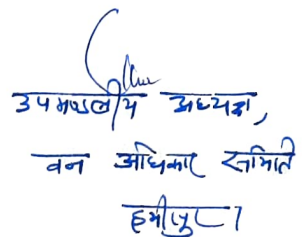 उपमण्डलीय अध्यक्ष,
वन अधिकार समिति
हमीरपुर।